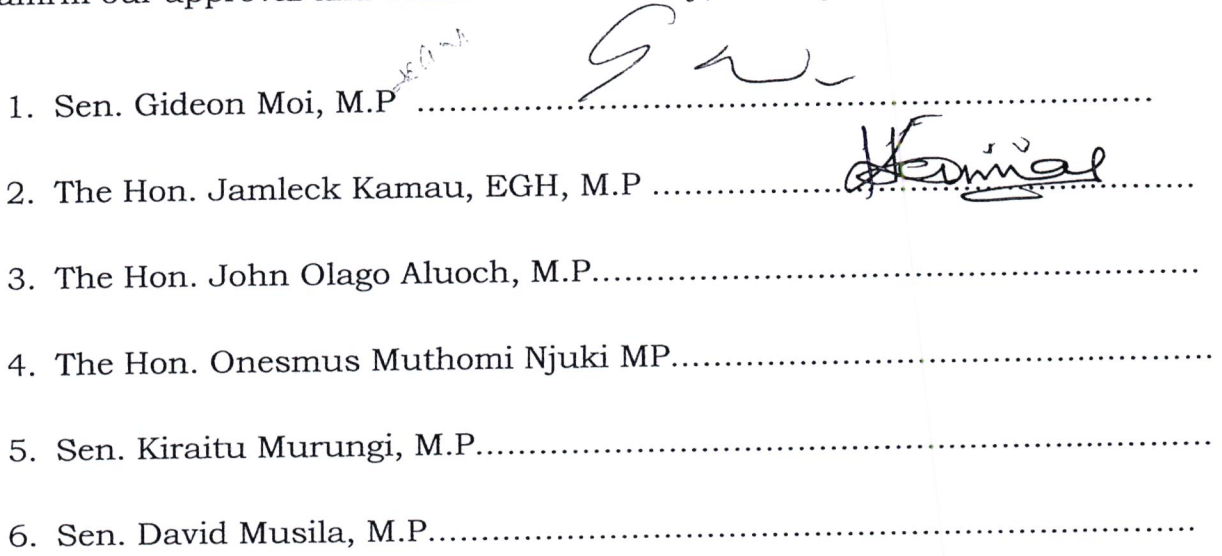 1. Sen. Gideon Moi, M.P ................................................................................
2. The Hon. Jamleck Kamau, EGH, M.P ...........................................................
3. The Hon. John Olago Aluoch, M.P..................................................................
4. The Hon. Onesmus Muthomi Njuki MP...........................................................
5. Sen. Kiraitu Murungi, M.P................................................................................
6. Sen. David Musila, M.P....................................................................................